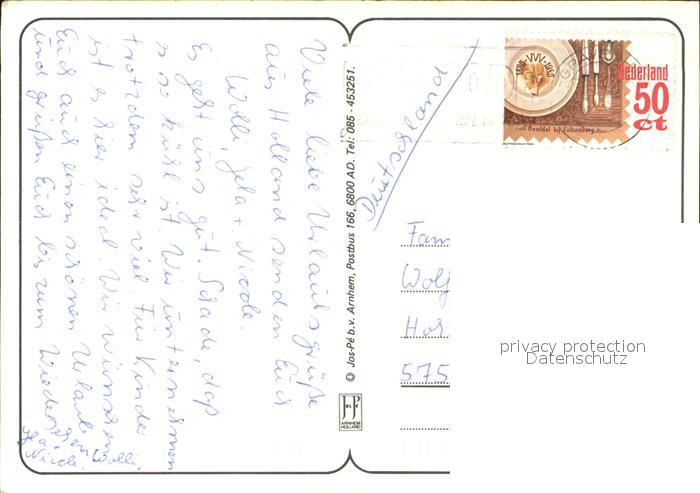 Viele liebe Urlaubsgrüße
aus Holland senden Euch
Wolli, Gela + Nicole.
Es geht uns gut. Schade, daß
es so kühl ist. Wir unternehmen
trotzdem sehr viel. Für Kinder
ist es hier ideal. Wir wünschen
Euch auch einen schönen Urlaub
und grüßen Euch bis zum Wiedersehen
Wolli,
Nicole
© Jos-Pé b.v. Arnhem, Postbus 166, 6800 AD. Tel.: 085 - 453251.
JosPé
ARNHEM
HOLLAND
1885 VVV 1985
Nederland
50
ct
Geuldal bij Valkenburg
Deutschland
Fam
Wolf
Ho
575
privacy protection
Datenschutz